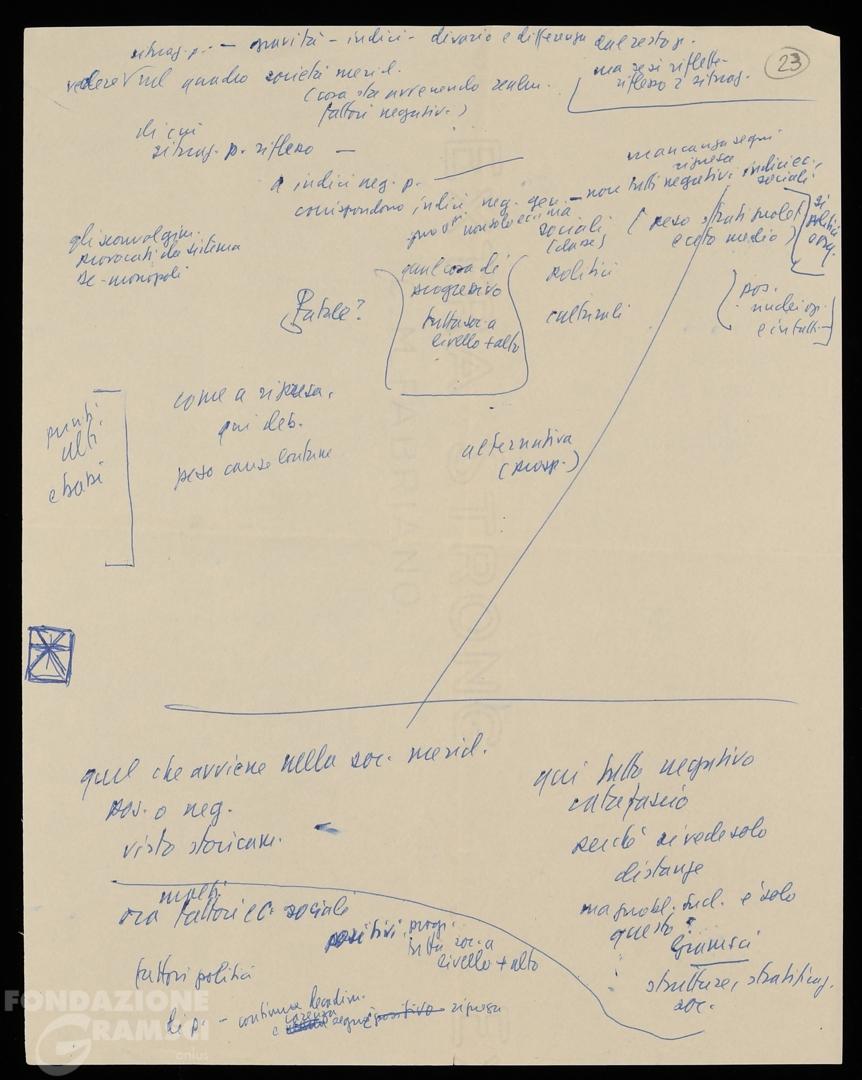 situaz. p. - gravità - indici - divario e differenza dal resto p.
23
vedere nel quadro società merid.
(cosa sta avvenendo realm.
fattori negativi.)
ma se si riflette
riflesso 2 situaz.
di cui
situaz. p. riflesso -
mancanza segni
ripresa
a indici neg. p.
corrispondono indici neg. gen. - non tutti negativi indici ec.
sociali
questi non solo
sociali
(classe)
(peso strati
e ceto medio)
si
politici
gli sconvolgim.
provocati da sistema
monopoli
qualcosa di
progressivo
politici
pos.
nuclei
Fatale?
tutta soc. a
livello + alto
culturali
come a ripresa.
qui deb.
peso cause lontane
punti
alti
e bassi
alternativa
(prosp.)
quel che avviene nella soc. merid.
pos. o neg.
visto storicam.
qui tutto negativo
catafascio
perché si vede solo
distanze
ma probl. sud. è solo
questo
Gramsci
strutture, stratificaz.
soc.
molti
ora fattori ec. sociali
positivi, progr.
tutta soc. a
livello + alto
fattori politici
di p. - continua
carenza
e segni positivo ripresa
FONDAZIONE
GRAMSCI
onlus
FABRIANO